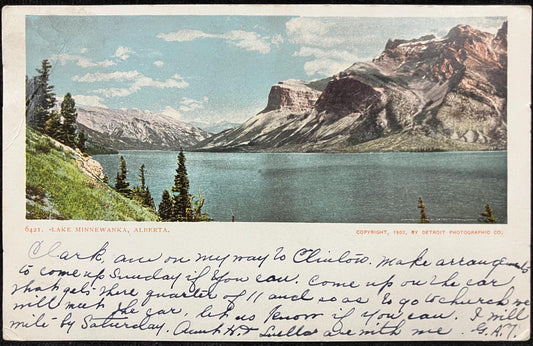 6421. LAKE MINNEWANKA, ALBERTA.
COPYRIGHT, 1902, BY DETROIT PHOTOGRAPHIC CO.
Clark, are on my way to Clinton. make arrangements
to come up Sunday if you can. come up on the car
that gets there quarter of 11 and so as to go to church we
will meet the car, let us know if you can. I will
mite by Saturday. Aunt H & Luella are with me. G.A.T.